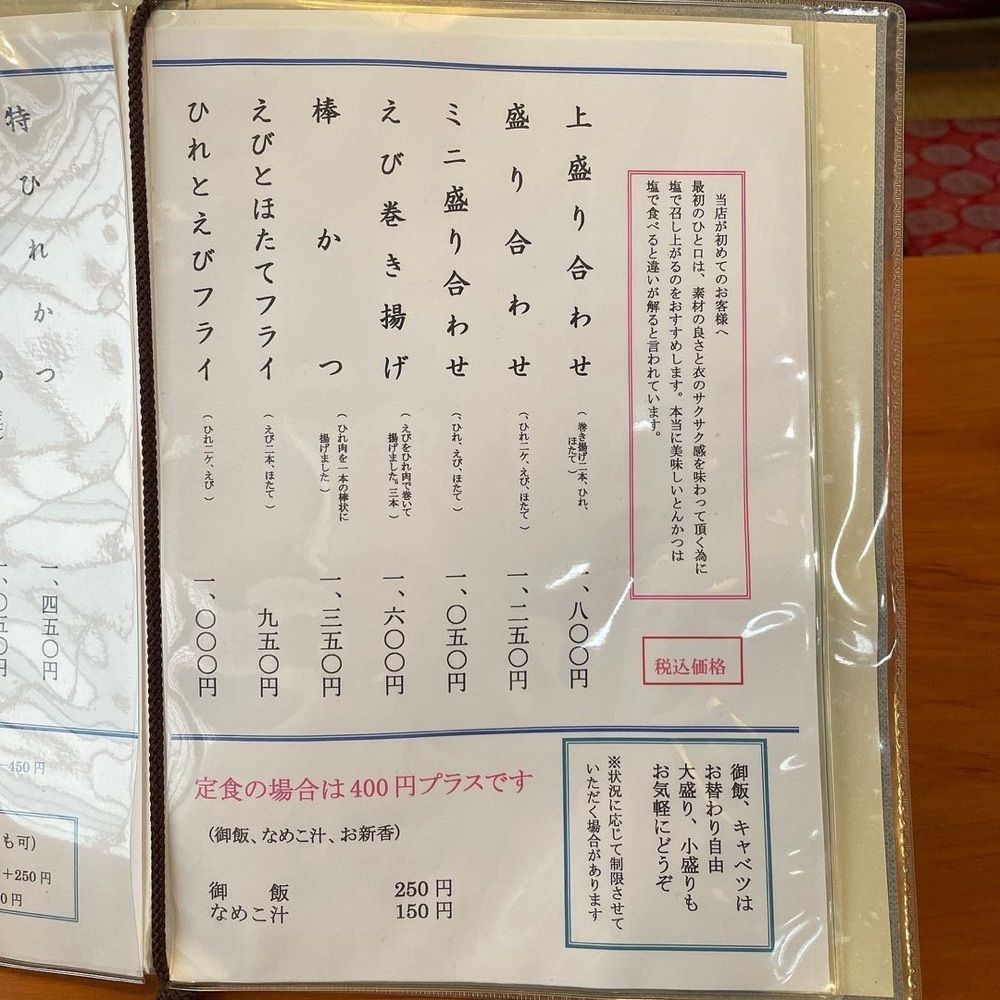 当店が初めてのお客様へ
最初のひと口は、素材の良さと衣のサクサク感を味わって頂く為に
塩で召し上がるのをおすすめします。本当に美味しいとんかつは
塩で食べると違いが解ると言われています。
税込価格
上盛り合わせ
(巻き揚げ二本、ひれ、
ほたて)
一、八〇〇円
盛り合わせ
(ひれ二ケ、えび、ほたて)
一、二五〇円
ミニ盛り合わせ
(ひれ、えび、ほたて)
一、〇五〇円
えび巻き揚げ
(えびをひれ肉で巻いて
揚げました。三本)
一、六〇〇円
棒かつ
(ひれ肉を一本の棒状に
揚げました)
一、三五〇円
えびとほたてフライ
(えび二本、ほたて)
九五〇円
ひれとえびフライ
(ひれ二ケ、えび)
一、〇〇〇円
御飯、キャベツは
お替わり自由
大盛り、小盛りも
お気軽にどうぞ
※状況に応じて制限させて
いただく場合があります
定食の場合は400円プラスです
(御飯、なめこ汁、お新香)
御飯 250円
なめこ汁 150円
特ひれかつ
一、四五〇円
一、〇五〇円
450円
も可)
+250円
0円